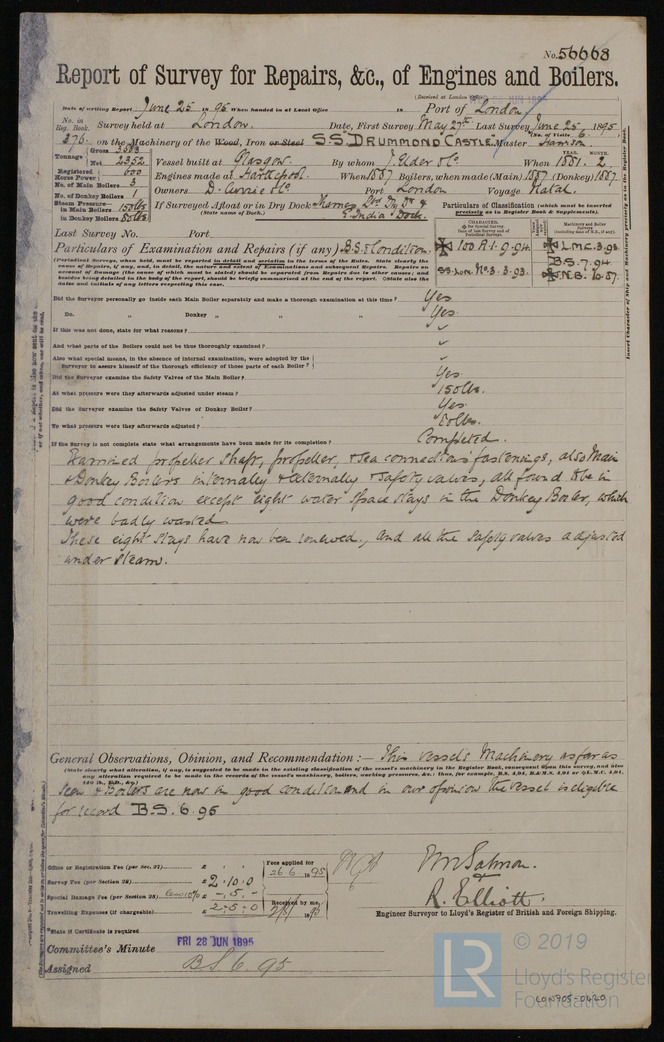 No. 56668
Report of Survey for Repairs, &c., of Engines and Boilers.
(Received at London Office
Date of writing Report June 25 1895 When handed in at Local Office 18 Port of London
No. in Reg. Book. 376. Survey held at London. Date, First Survey May 27th Last Survey June 25 1895.
(No. of Visits 6.)
on the Machinery of the Wood, Iron or Steel S.S. DRUMMOND CASTLE Master Harrison
Tonnage Gross 3663
Net 2352
Registered Horse Power 600
No. of Main Boilers 3
No. of Donkey Boilers 1
Steam Pressure— in Main Boilers 150lbs
in Donkey Boilers 80lbs.
Vessel built at Glasgow. By whom J. Elder & Co When 1881. 2
YEAR. MONTH.
Engines made at Hartlepool. When 1887 Boilers, when made (Main) 1887 (Donkey) 1887
Owners D. Currie & Co Port London Voyage Natal.
If Surveyed Afloat or in Dry Dock Thames &
(State name of Dock.) E. India Dock.
Particulars of Classification (which must be inserted precisely as in Register Book & Supplements).
CHARACTER.
Machinery and Boiler Surveys
100 A.1. 9.94.
SS. Lon. No. 3. 3.93.
L.M.C. 3.93
B.S. 7.94.
N.B. 10.87.
Last Survey No. Port
Particulars of Examination and Repairs (if any) B.S. & Condition.
(Periodical Surveys, when held, must be reported in detail and seriatim in the terms of the Rules. State clearly the
Did the Surveyor personally go inside each Main Boiler separately and make a thorough examination at this time? Yes
Do. Donkey " " " Yes.
If this was not done, state for what reasons?
And what parts of the Boilers could not be thus thoroughly examined?
Also what special means, in the absence of internal examination, were adopted by the
Surveyor to assure himself of the thorough efficiency of those parts of each Boiler?
Did the Surveyor examine the Safety Valves of the Main Boiler? Yes.
At what pressure were they afterwards adjusted under steam? 150lbs.
Did the Surveyor examine the Safety Valves of Donkey Boiler? Yes.
To what pressure were they afterwards adjusted? 80lbs.
If the Survey is not complete state what arrangements have been made for its completion? Completed.
Examined propeller shaft, propeller, & sea connections' fastenings, also Main
& Donkey Boilers internally & externally & safety valves, all found to be in
good condition except eight water space stays in the Donkey Boiler, which
were badly wasted.
These eight stays have now been renewed, and all the safety valves adjusted
under steam.
General Observations, Opinion, and Recommendation:— This vessel's Machinery as far as
(State clearly what alteration, if any, is suggested to be made in the existing classification of the vessel's machinery in the Register Book, consequent upon this survey, and also
any alteration required to be made in the records of the vessel's machinery, boilers, working pressures, &c.: thus, for example, B.S. 4,94, B.&M.S. 4,94 or L.M.C. 4,94,
seen & Boilers are now in good condition and in our opinion the vessel is eligible
for record B.S. 6. 95
Office or Registration Fee (per Sec. 27) £ : :
Survey Fee (per Section 28) £ 2 : 10 : 0
Special Damage Fee (per Section 28) £ - . 5 . -
Travelling Expenses (if chargeable) £ 2 - 5 - 0
Fees applied for 26.6 1895
Received by me,
Wm Salmon.
&
R. Elliott.
Engineer Surveyor to Lloyd's Register of British and Foreign Shipping.
State if Certificate is required
Committee's Minute FRI 28 JUN 1895
Assigned B.S. 6 95
LR
© 2019
Lloyd's Register
Foundation
LON905-0620